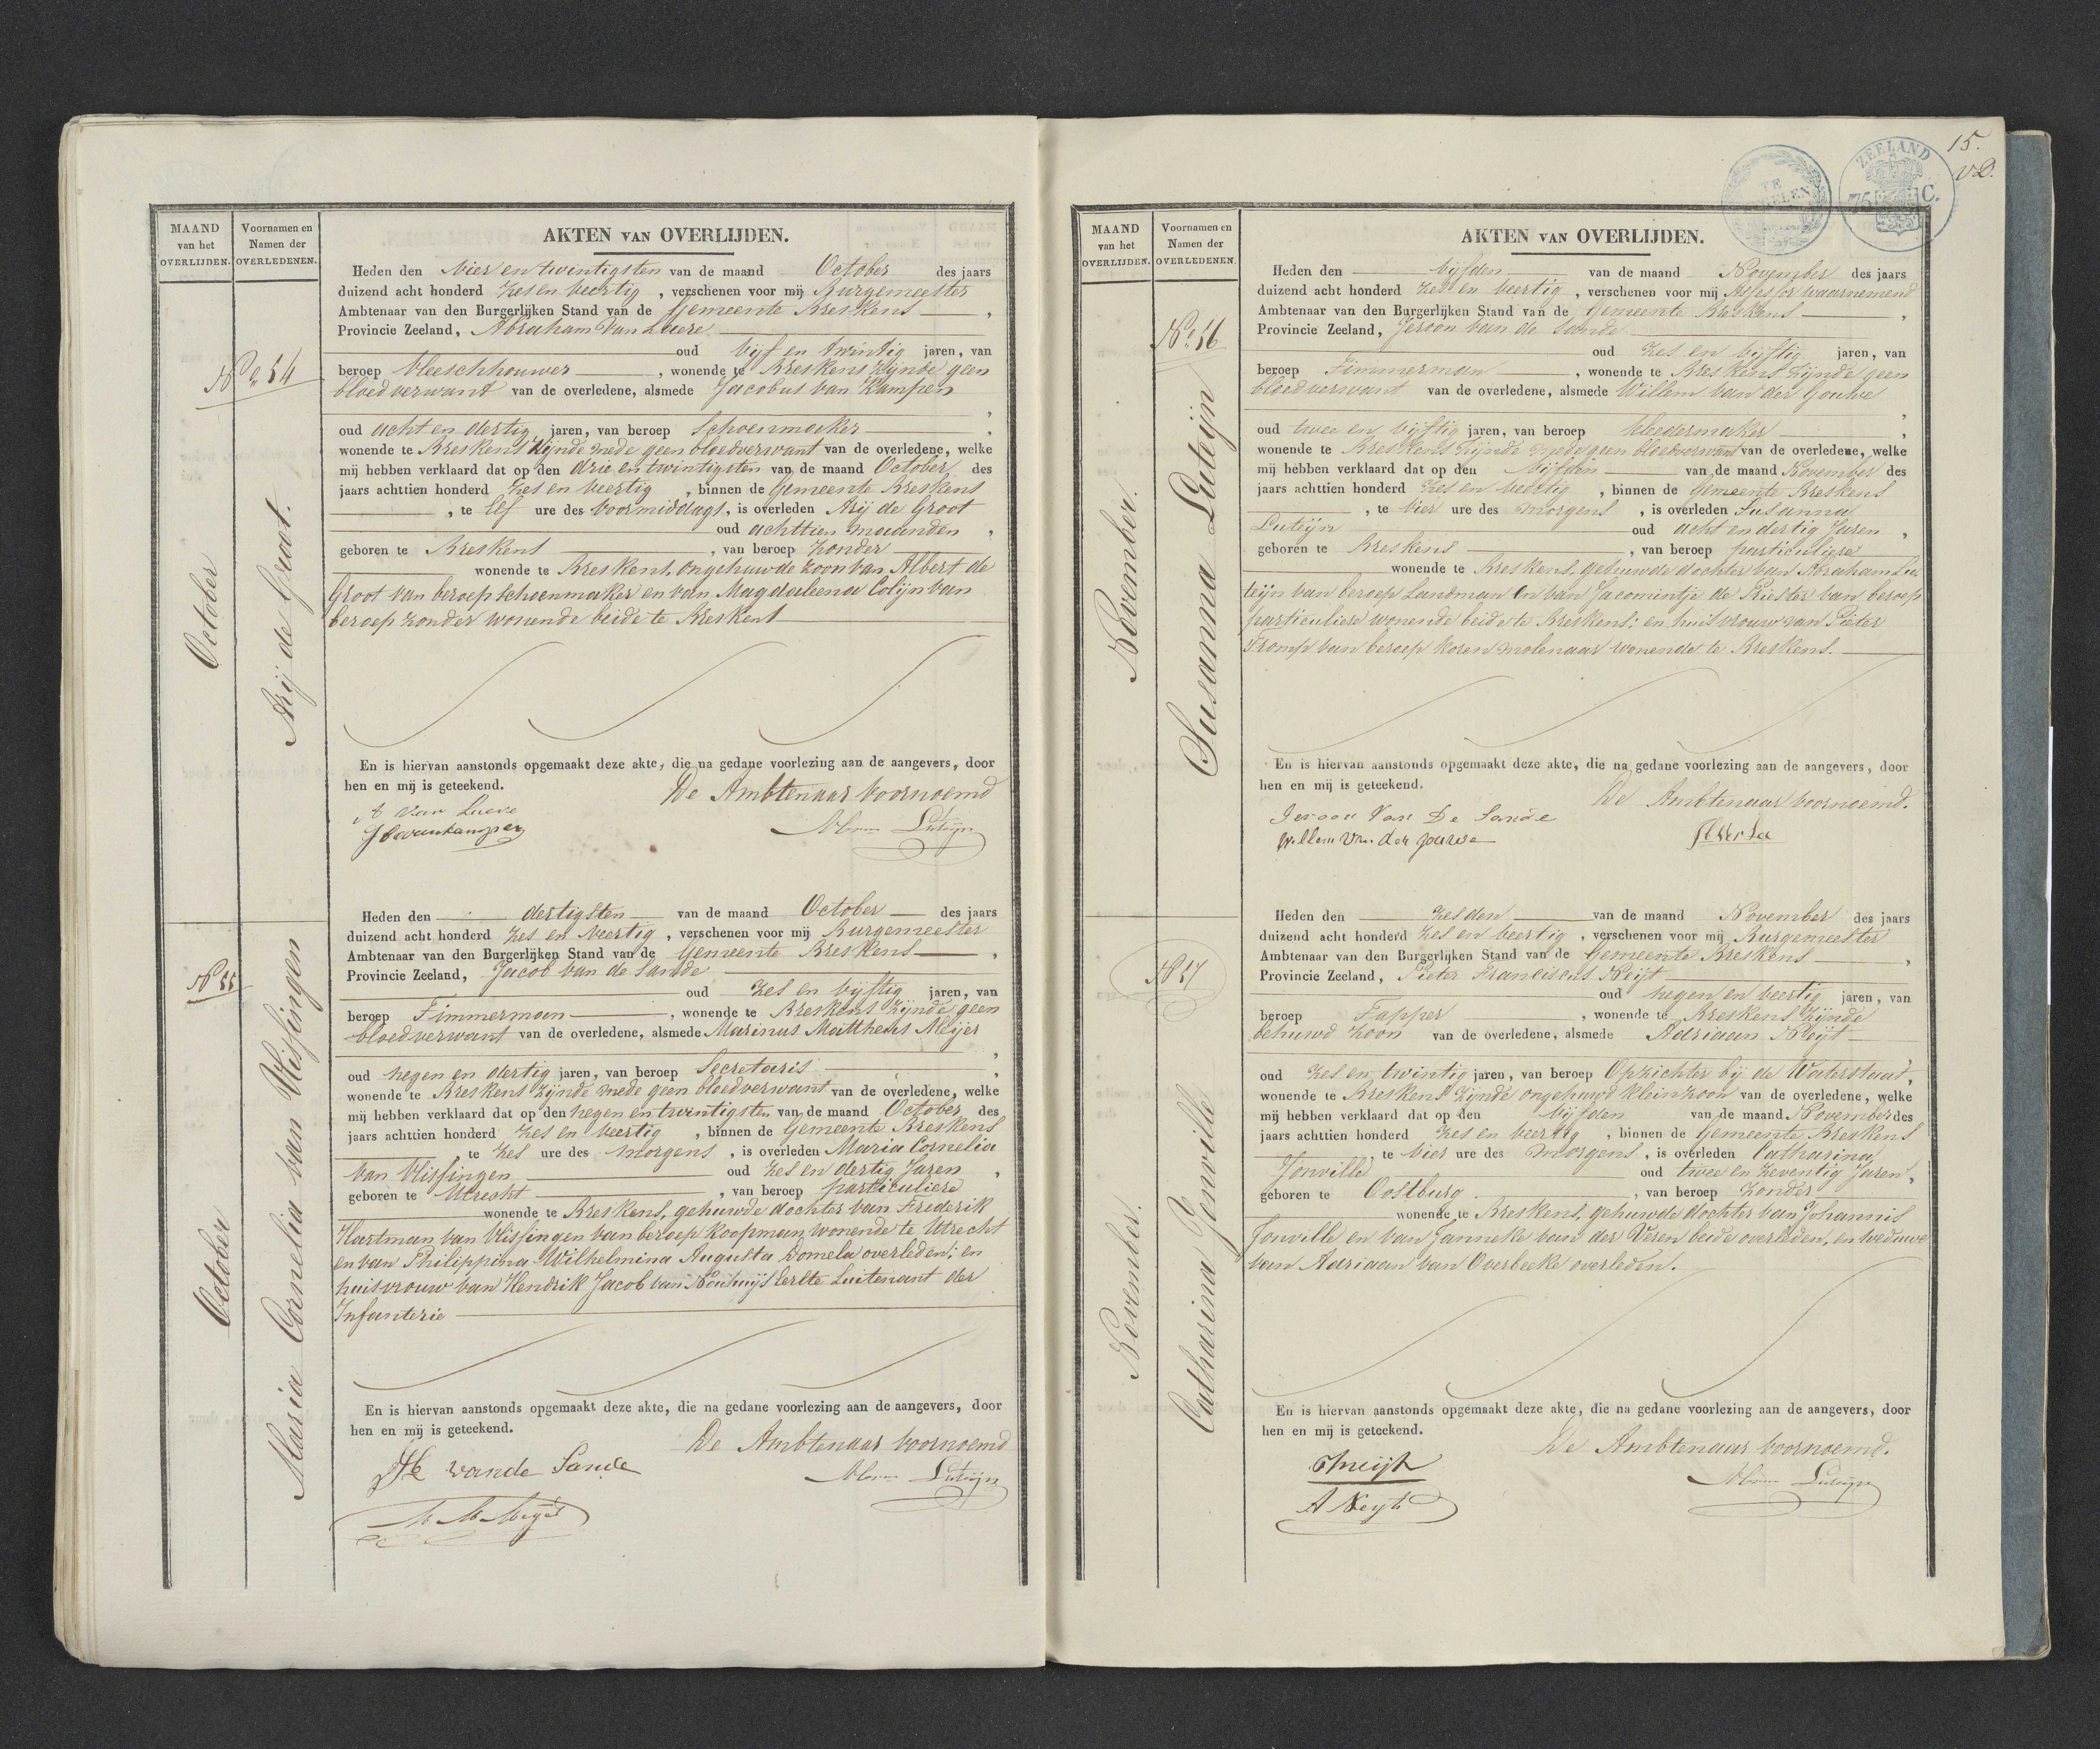 MAAND
van het
OVERLIJDEN.
Voornamen en
Namen der
OVERLEDENEN.
AKTEN VAN OVERLIJDEN.
October
No 54
Arij de Groot.
Heden den Vier en twintigsten van de maand October des jaars
duizend acht honderd zes en veertig, verschenen voor mij Burgemeester
Ambtenaar van den Burgerlijken Stand van de Gemeente Breskens,
Provincie Zeeland, Abraham Van Luere
oud Vijf en twintig jaren, van
beroep Vleeschhouwer, wonende te Breskens zijnde geen
bloedverwant van de overledene, alsmede Jacobus van Kampen,
oud acht en dertig jaren, van beroep Schoenmaker,
wonende te Breskens zijnde mede geen bloedverwant van de overledene, welke
mij hebben verklaard dat op den drie en twintigsten van de maand October des
jaars achttien honderd zes en veertig, binnen de Gemeente Breskens
, te Elf ure des voormiddags, is overleden Arij de Groot
oud achttien maanden,
geboren te Breskens, van beroep zonder
wonende te Breskens, ongehuwde zoon van Albert de
Groot van beroep schoenmaker en van Magdaleena Colijn van
beroep zonder wonende beide te Breskens
En is hiervan aanstonds opgemaakt deze akte, die na gedane voorlezing aan de aangevers, door
hen en mij is geteekend.
De Ambtenaar voornoemd
A Van Luere
J vankampen
Abm Luteijn
October
No 55
Maria Cornelia van Vlissingen
Heden den dertigsten van de maand October des jaars
duizend acht honderd zes en veertig, verschenen voor mij Burgemeester
Ambtenaar van den Burgerlijken Stand van de Gemeente Breskens,
Provincie Zeeland, Jacob van de Sande
oud zes en vijftig jaren, van
beroep Timmerman, wonende te Breskens zijnde geen
bloedverwant van de overledene, alsmede Marinus Mattheus Meijer,
oud negen en dertig jaren, van beroep Secretaris,
wonende te Breskens zijnde mede geen bloedverwant van de overledene, welke
mij hebben verklaard dat op den negen en twintigsten van de maand October des
jaars achttien honderd zes en veertig, binnen de Gemeente Breskens
, te zes ure des morgens, is overleden Maria Cornelia
van Vlissingen oud zes en dertig Jaren,
geboren te Utrecht, van beroep particuliere
wonende te Breskens, gehuwde dochter van Frederik
Hartman van Vlissingen van beroep koopman wonende te Utrecht
en van Philippina Wilhelmina Augusta Domela overleden; en
huisvrouw van Hendrik Jacob van Nouhuijs Eerste Luitenant der
Infanterie
En is hiervan aanstonds opgemaakt deze akte, die na gedane voorlezing aan de aangevers, door
hen en mij is geteekend.
De Ambtenaar voornoemd
vande Sande
M M Meijer
Abm Luteijn
15.
vD.
ZEELAND
75 C.
MAAND
van het
OVERLIJDEN.
Voornamen en
Namen der
OVERLEDENEN.
AKTEN VAN OVERLIJDEN.
November.
No 56
Susanna Luteijn
Heden den vijfden van de maand November des jaars
duizend acht honderd zes en veertig, verschenen voor mij Assessor waarnemend
Ambtenaar van den Burgerlijken Stand van de Gemeente Breskens,
Provincie Zeeland, Jeroon van de Sande
oud zes en vijftig jaren, van
beroep Timmerman, wonende te Breskens zijnde geen
bloedverwant van de overledene, alsmede Willem van der Gouwe,
oud twee en vijftig jaren, van beroep kleedermaker,
wonende te Breskens zijnde mede geen bloedverwant van de overledene, welke
mij hebben verklaard dat op den vijfden van de maand November des
jaars achttien honderd zes en veertig, binnen de Gemeente Breskens
, te vier ure des morgens, is overleden Susanna
Luteijn oud acht en dertig Jaren,
geboren te Breskens, van beroep particuliere
wonende te Breskens, gehuwde dochter van Abraham Lu-
teijn van beroep Landman en van Jacomintje de Priester van beroep
particuliere wonende beide te Breskens; en huisvrouw van Pieter
Tromp van beroep koren molenaar wonende te Breskens.
En is hiervan aanstonds opgemaakt deze akte, die na gedane voorlezing aan de aangevers, door
hen en mij is geteekend.
De Ambtenaar voornoemd.
Jeroon Van De Sande
Willem Van der gouwe
November.
No 57
Catharina Jonville
Heden den zesden van de maand November des jaars
duizend acht honderd zes en veertig, verschenen voor mij Burgemeester
Ambtenaar van den Burgerlijken Stand van de Gemeente Breskens,
Provincie Zeeland, Pieter Franciscus Neijt
oud negen en veertig jaren, van
beroep Tapper, wonende te Breskens zijnde
behuwd zoon van de overledene, alsmede Adriaan Neijt
oud zes en twintig jaren, van beroep Opzichter bij de Waterstaat,
wonende te Breskens zijnde ongehuwd kleinzoon van de overledene, welke
mij hebben verklaard dat op den vijfden van de maand November des
jaars achttien honderd zes en veertig, binnen de Gemeente Breskens
, te vier ure des morgens, is overleden Catharina
Jonville oud twee en zeventig Jaren,
geboren te Oostburg, van beroep zonder
wonende te Breskens, gehuwde dochter van Johannis
Jonville en van Janneke van der Veren beide overleden, en weduwe
van Adriaan van Overbeeke overleden.
En is hiervan aanstonds opgemaakt deze akte, die na gedane voorlezing aan de aangevers, door
hen en mij is geteekend.
De Ambtenaar voornoemd.
A Neyt
Abm Luteijn